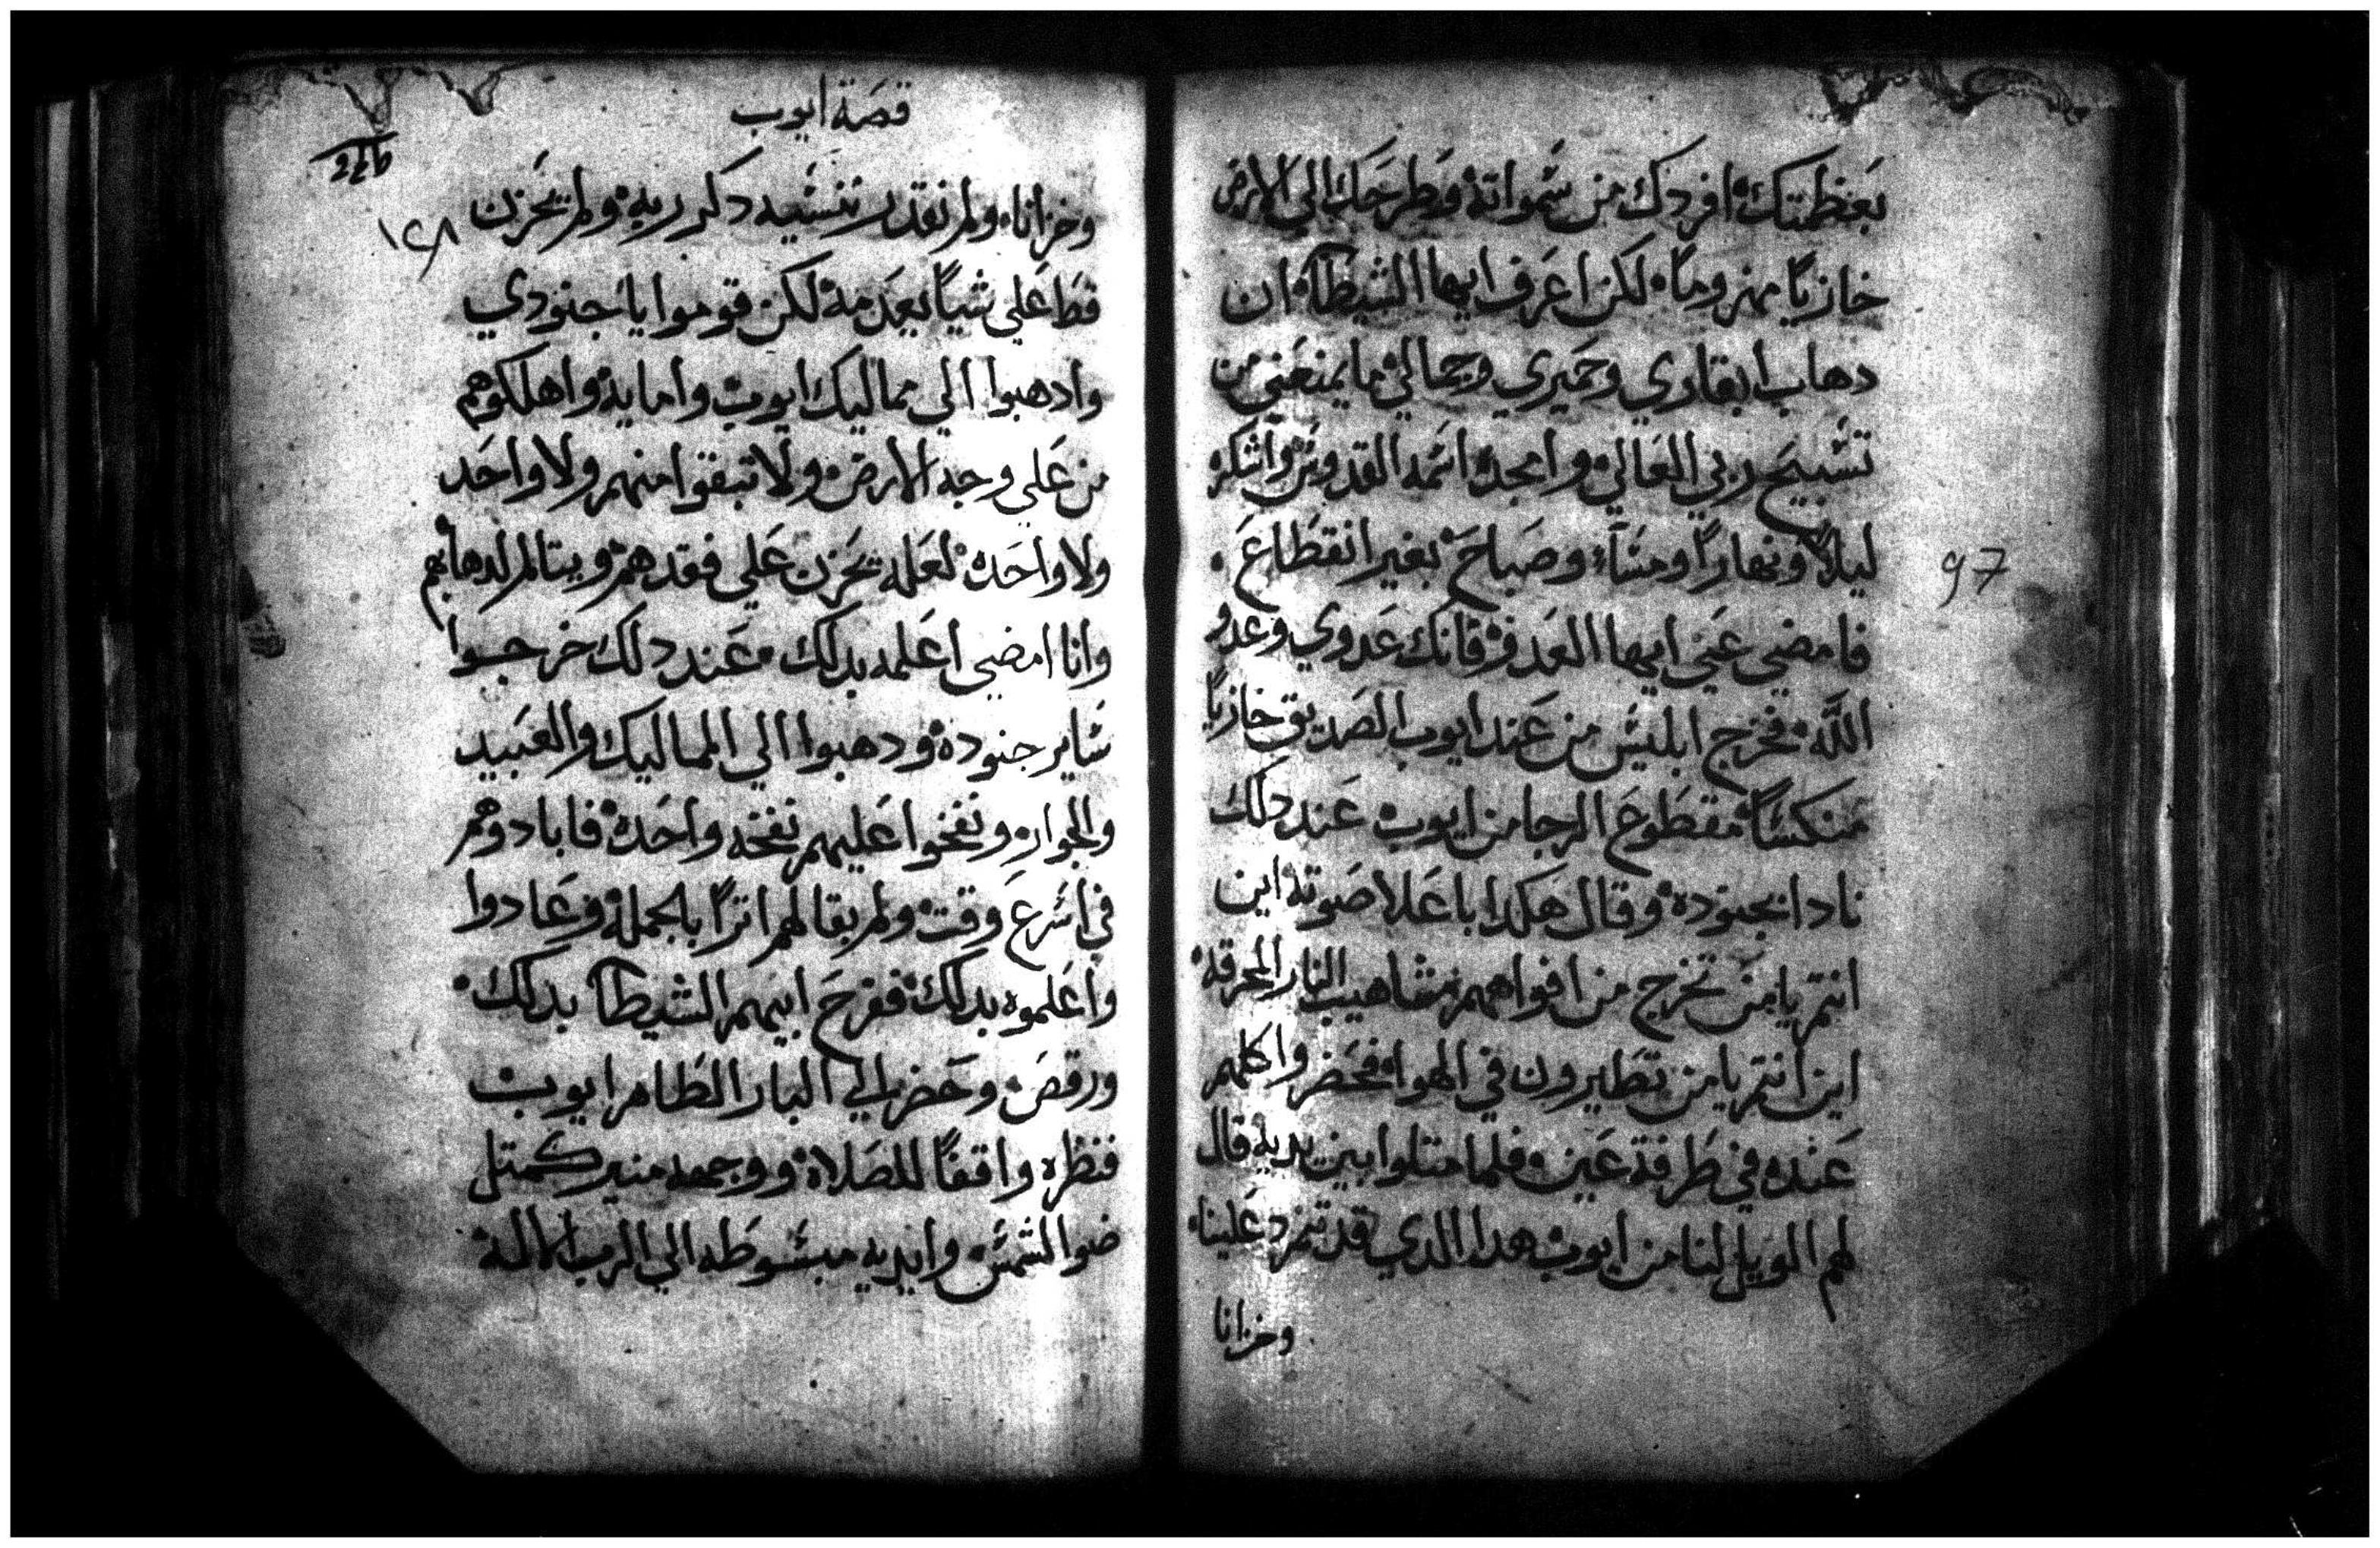 بعظمتك افردك من سمواته وطرحك الي الارض
خازيًا مهزومًا لكن اعرف ايها الشيطان ان
دهاب ابقاري وحميري وجمالي ما يمنعني من
تسبيح ربي العالي وامجد اسمه القدوس واشكره
ليلاً ونهارًا ومساءً وصباح بغير انقطاع
فامضي عني ايها العدو فانك عدوي وعدو
الله فخرج ابليس من عند ايوب الصديق خازيًا
منكسًا مقطوع الرجا من ايوب عند دلك
نادا بجنوده وقال هكدا باعلا صوته اين
انتم يا من تخرج من افواههم مشاهيب النار المحرقة
اين انتم يا من تطيرون في الهوا فحضروا كلهم
عنده في طرفة عين فلما متلوا بين يديه قال
لهم الويل لنا من ايوب هدا الدي قد تمرد علينا
وخزانا
97
قصة ايوب
١٢٨
وخزانا ولم نقدر ننسيه دكر ربه ولم يحزن
قط علي شيًا بعدمه لكن قوموا يا جنودي
وادهبوا الي مماليك ايوب وامايه واهلكوهم
من علي وجه الارض ولا تبقوا منهم ولا واحد
ولا واحده لعله يحزن علي فقدهم ويتالم لدهابهم
وانا امضي اعلمه بدلك عند دلك خرجوا
ساير جنوده ودهبوا الي المماليك والعبيد
والجوار ونفخوا عليهم نفخه واحده فابادوهم
في اسرع وقت ولم بقا لهم اترًا بالجملة وعادوا
واعلموه بدلك ففرح ابيهم الشيطان بدلك
ورقص وحضر الي البار الطاهر ايوب
فنظره واقفًا للصلاة ووجهه منير كمتل
ضوا الشمس وايديه مبسوطه الي الرب الاله